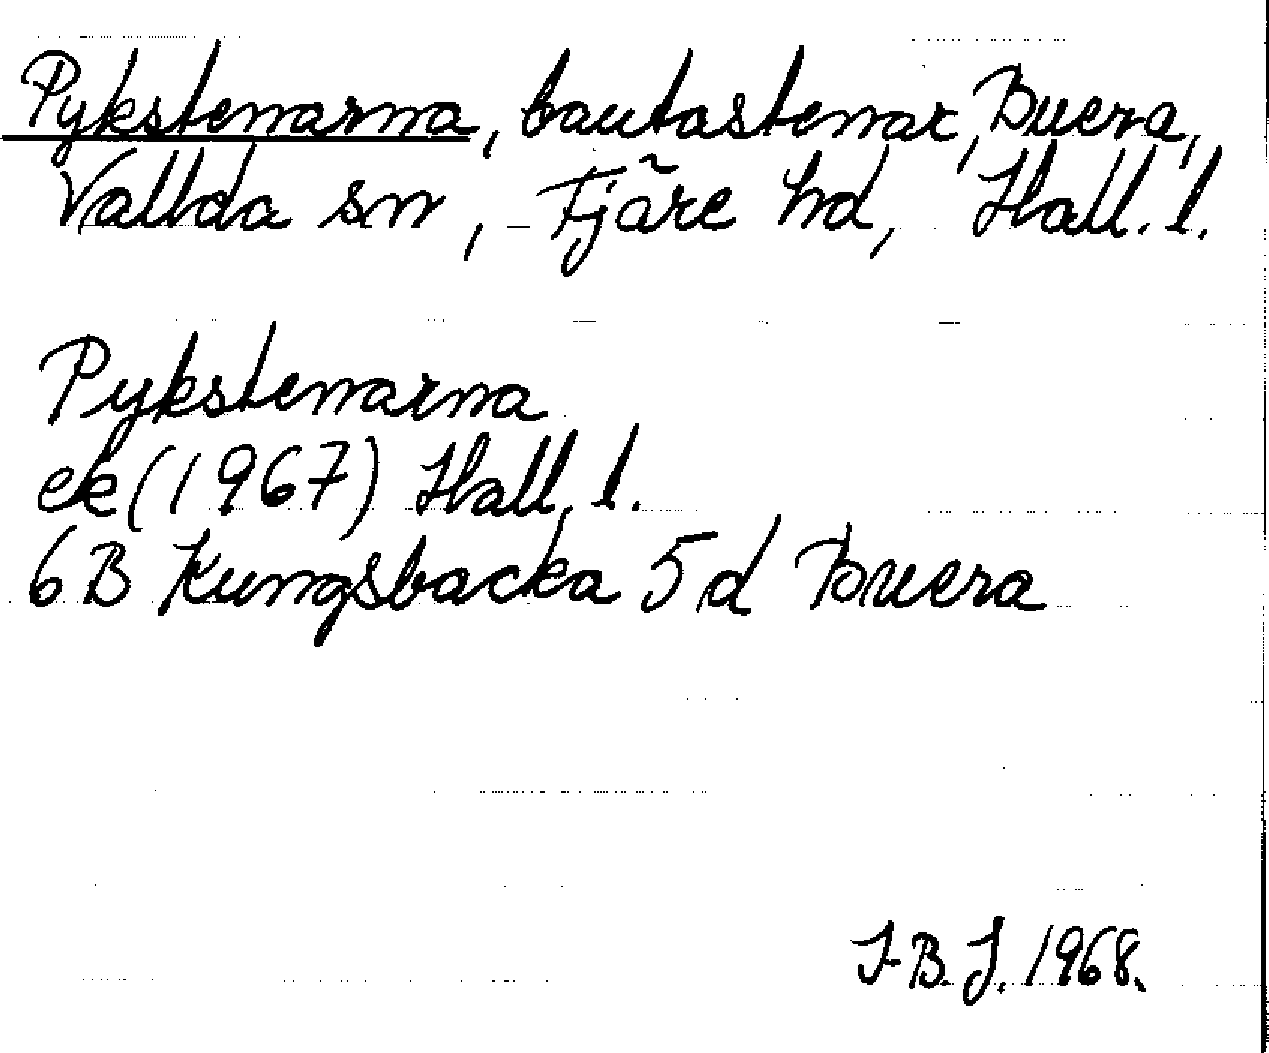 Pykstenarna, bautastenar, Buera,
Vallda sn, Fjäre hd, Hall. l.
Pykstenarna
ek (1967) Hall. l.
6B Kungsbacka 5d Buera
I. B. J. 1968.